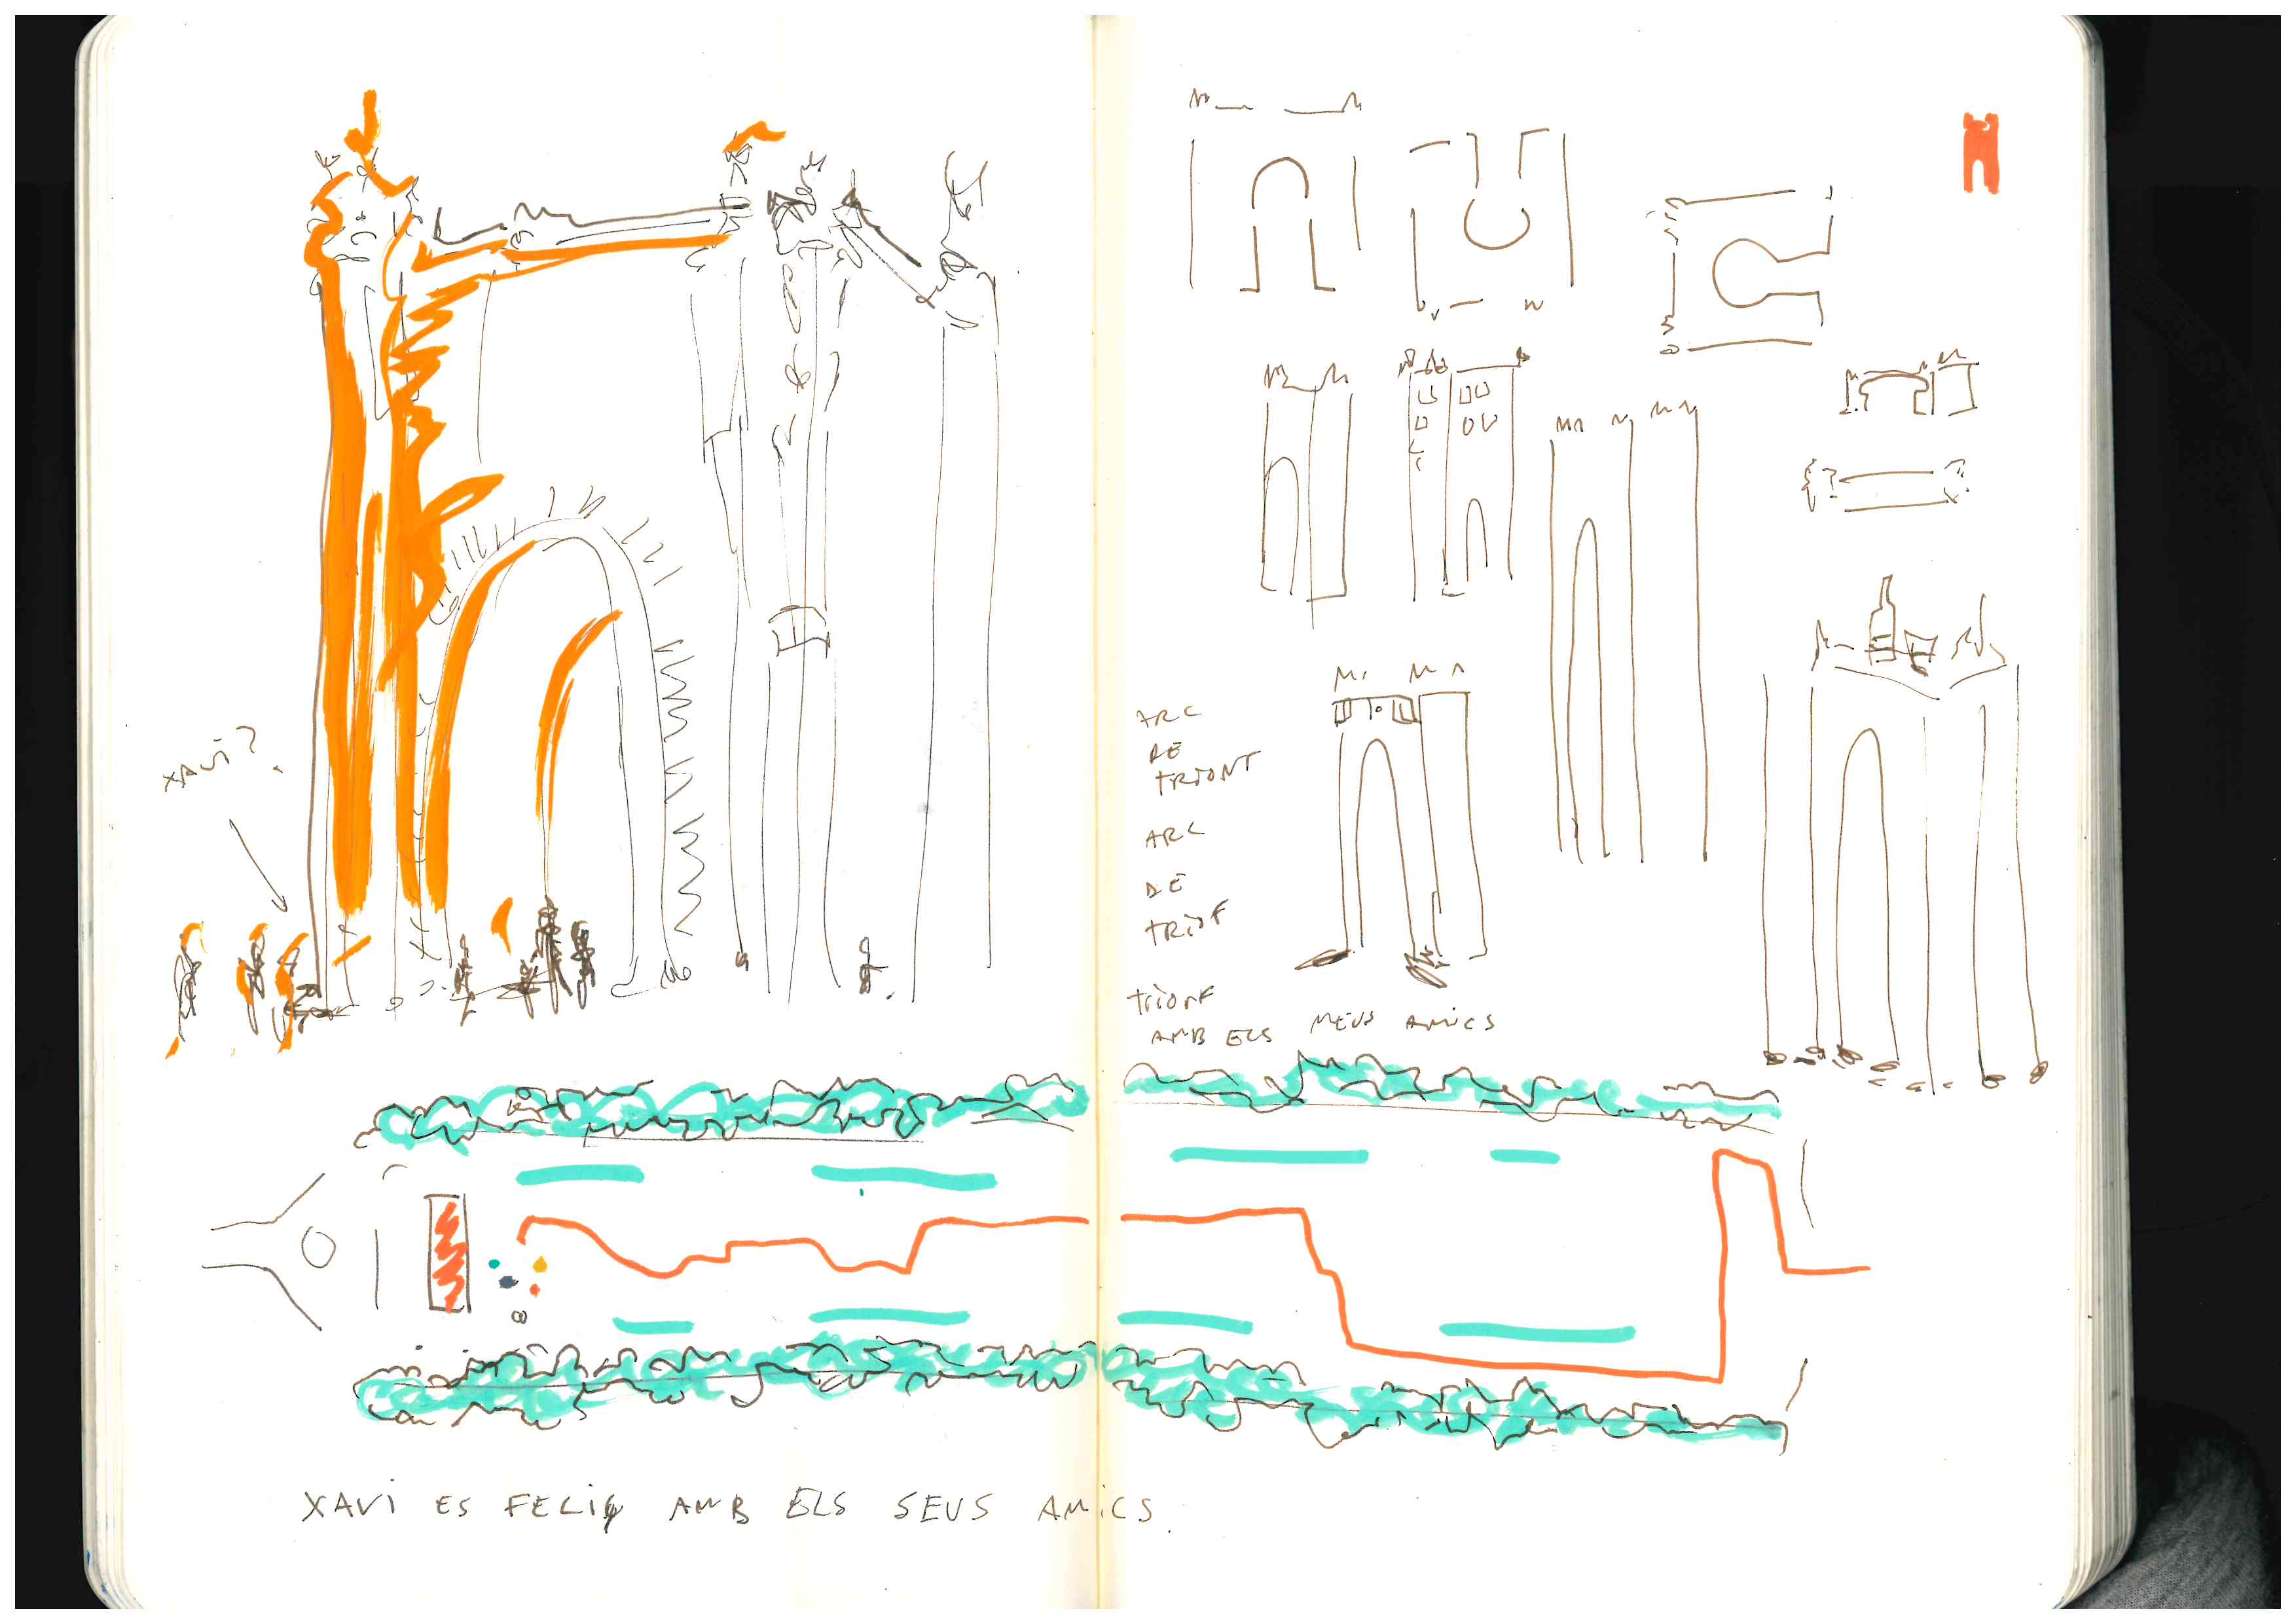 XAVI?
ARC
DE
TRIONT
ARC
DE
TRIOF
TRIONF
AMB ELS MEUS AMICS
XAVI ES FELIÇ AMB ELS SEUS AMICS.